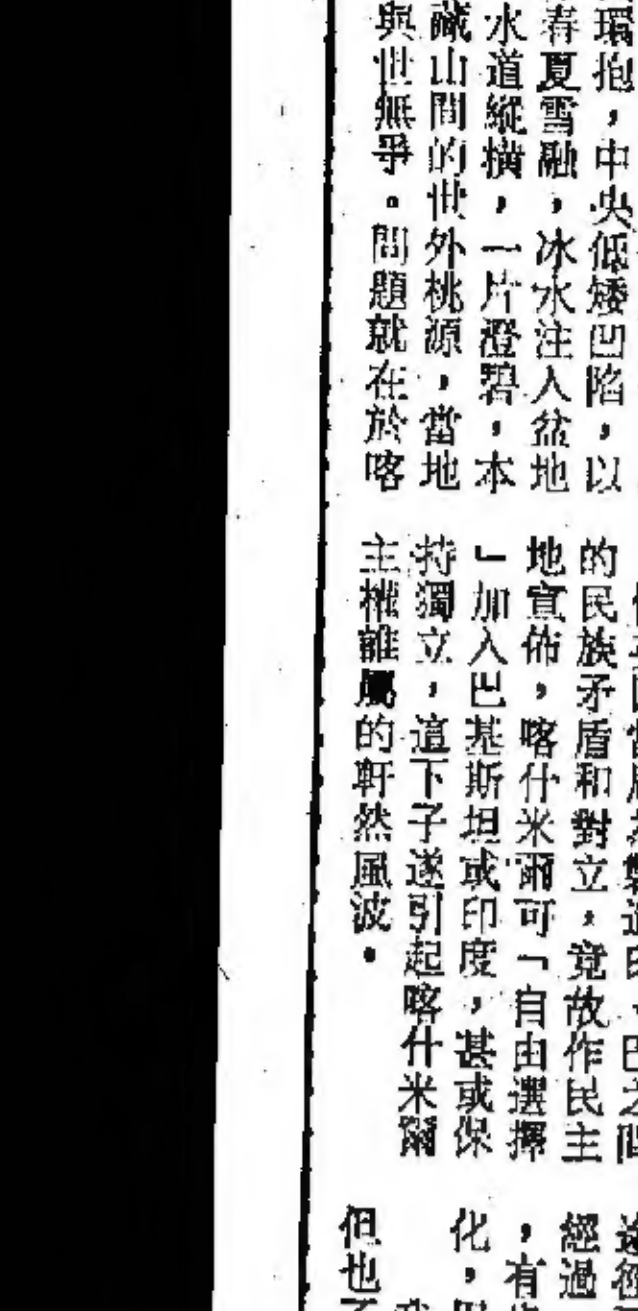 環抱，中央低矮凹陷，以
春夏雪融，冰水注入盆地
水道縱橫，一片澄碧，本
藏山間的世外桃源，當地
與世無爭。問題就在於喀
之間
的民族矛盾和對立，竟故作民主
地宣佈，喀什米爾可「自由選擇
」加入巴基斯坦或印度，甚或保
持獨立，這下子遂引起喀什米爾
主權誰屬的軒然風波。
經過
，有
化，
但也